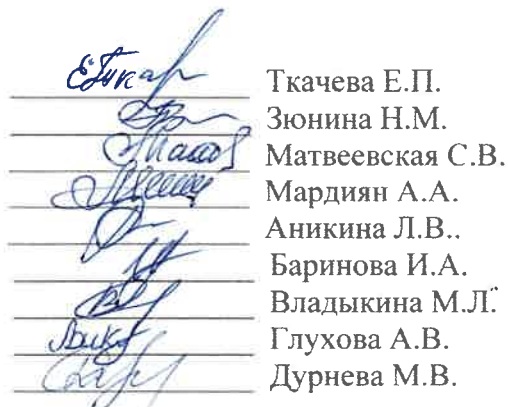 Ткачева Е.П.
Зюнина Н.М.
Матвеевская С.В.
Мардиян А.А.
Аникина Л.В..
Баринова И.А.
Владыкина М.Л.
Глухова А.В.
Дурнева М.В.